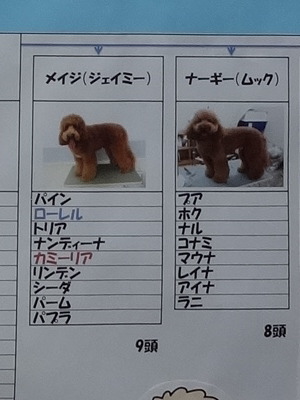 メイジ(ジェイミー)
パイン
ローレル
トリア
ナンディーナ
カミーリア
リンデン
シーダ
パーム
パプラ
9頭
ナーギー(ムック)
プア
ホク
ナル
コナミ
マウナ
レイナ
アイナ
ラニ
8頭